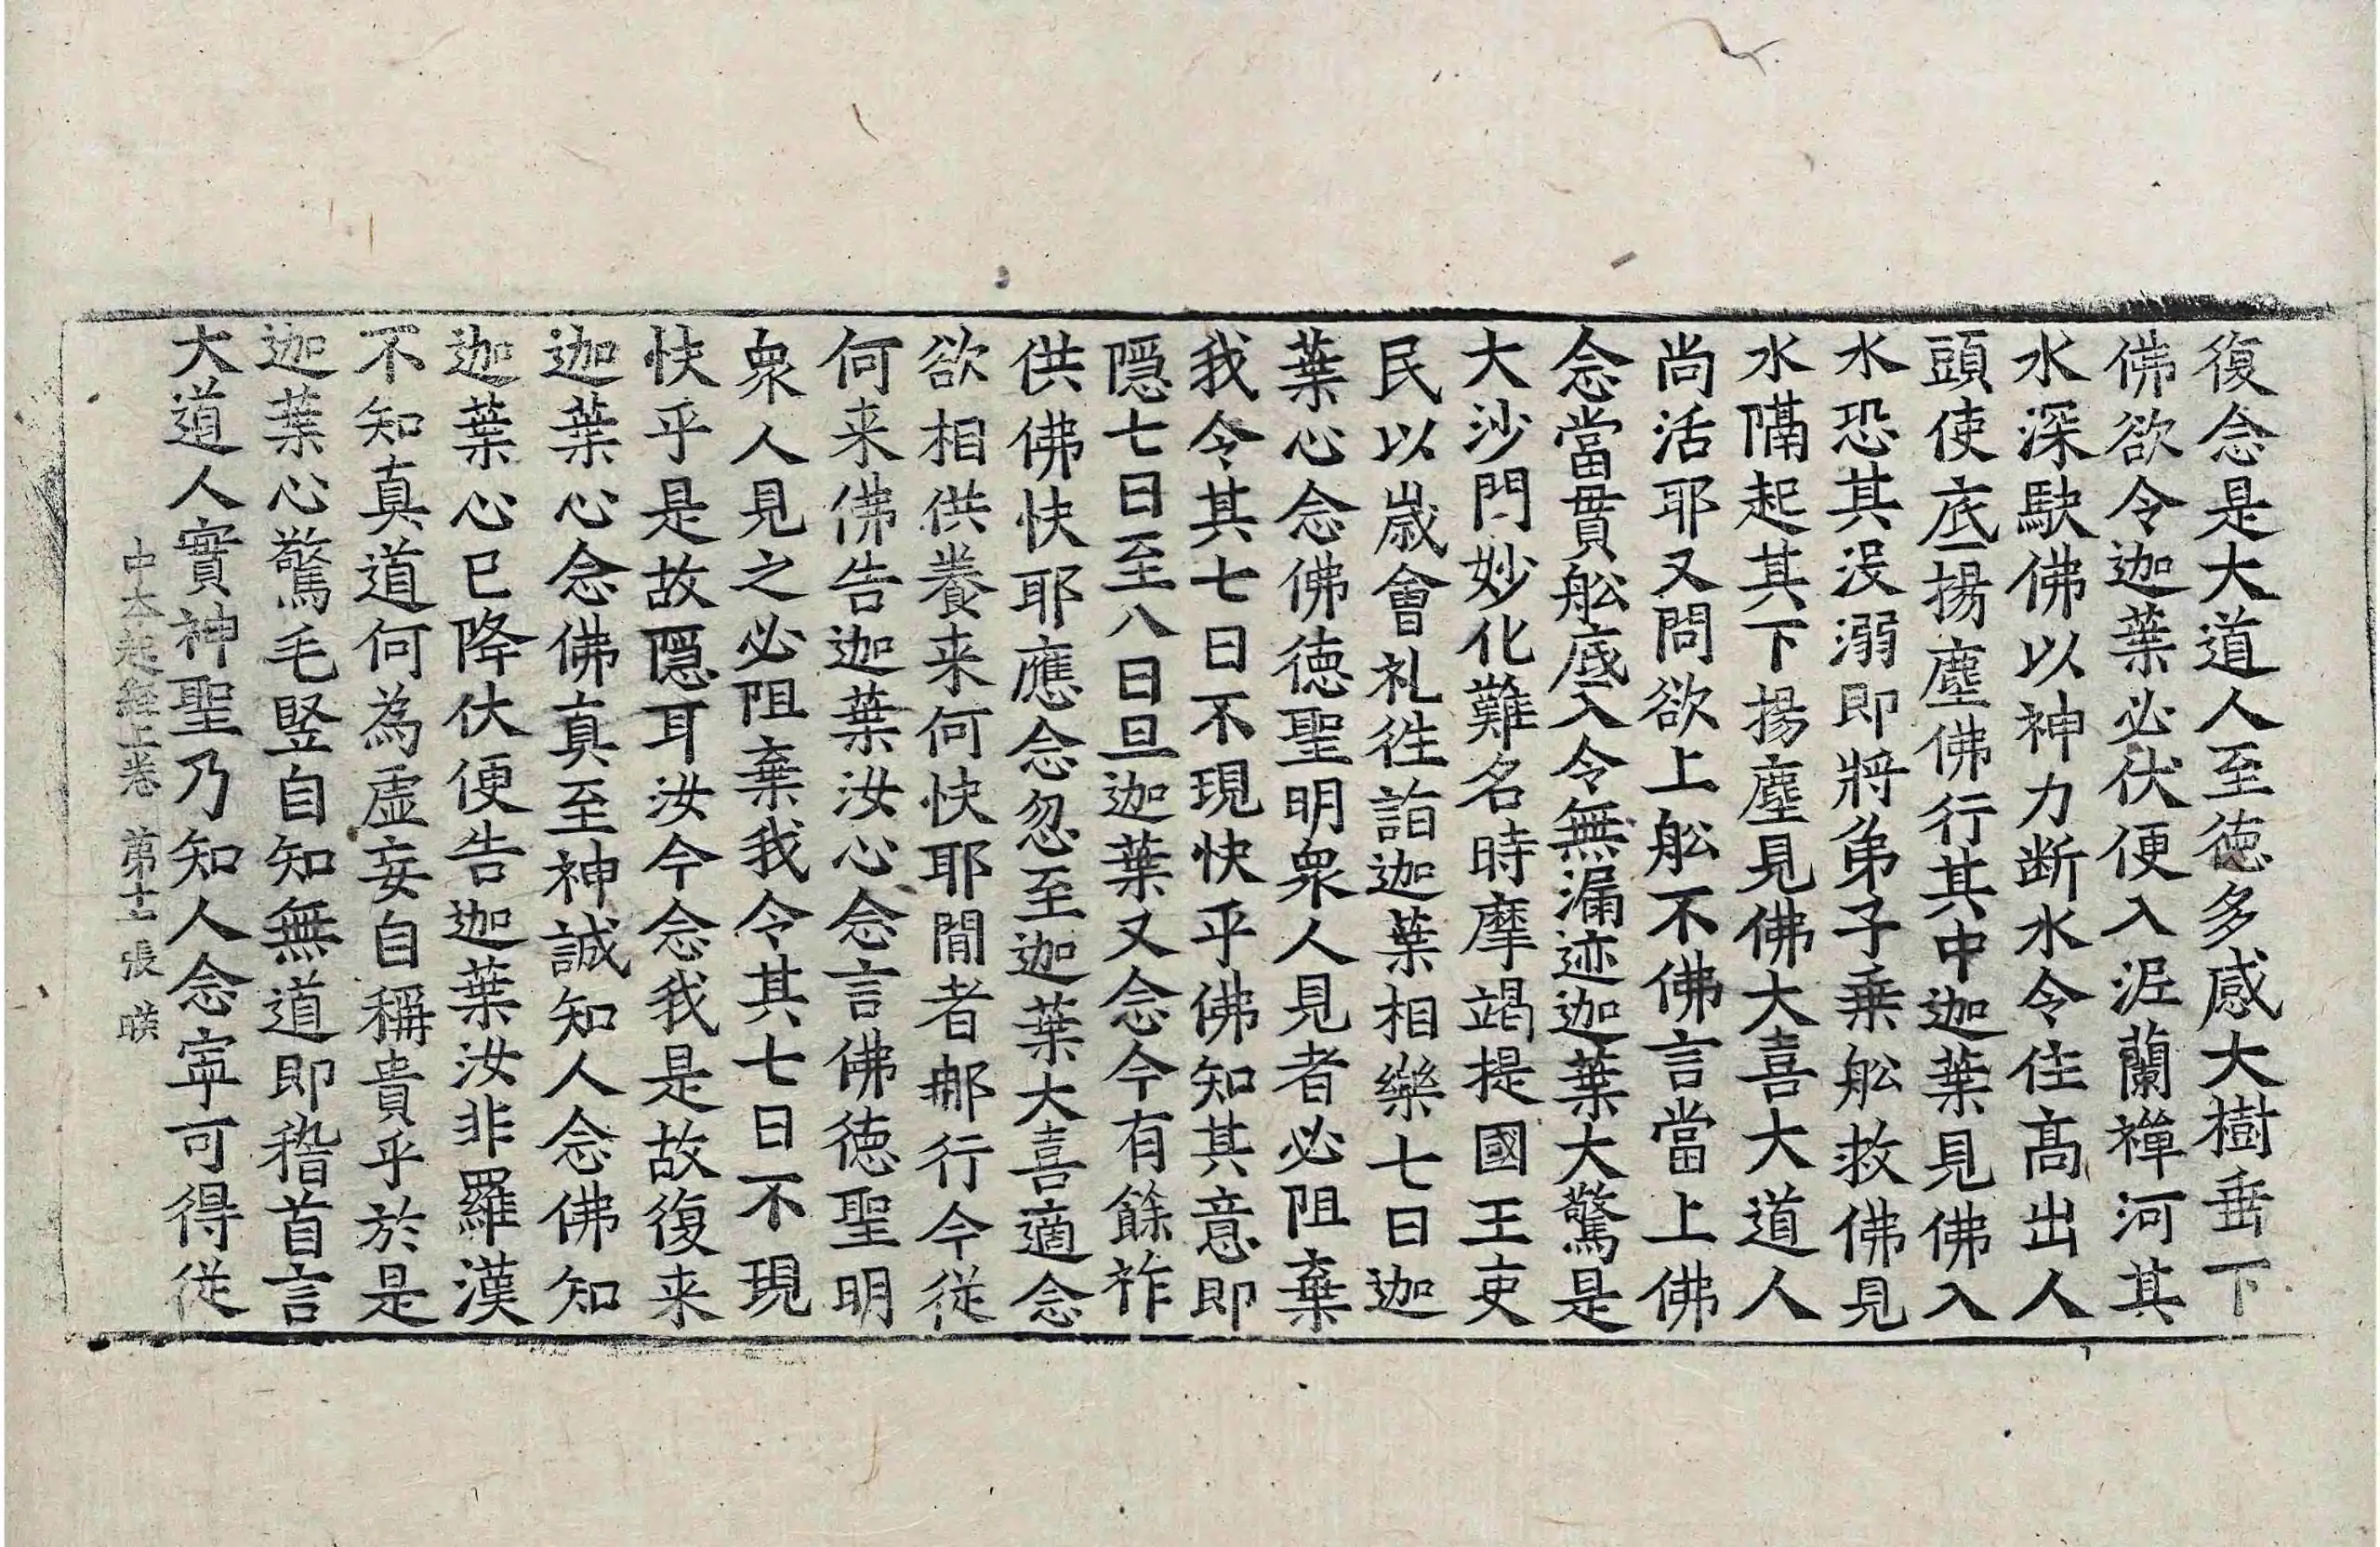 復念是大道人至徳多感大樹垂下
佛欲令迦葉必伏便入泥蘭禪河其
水深駃佛以神力断水令住髙出人
頭使底揚塵佛行其中迦葉見佛入
水恐其没溺即將弟子乗舩救佛見
水隔起其下揚塵見佛大喜大道人
尚活耶又問欲上舩不佛言當上佛
念當貫舩底入令無漏迹迦葉大驚是
大沙門妙化難名時摩竭提國王吏
民以嵗會礼徃詣迦葉相樂七日迦
葉心念佛徳聖明衆人見者必阻棄
我令其七日不現快乎佛知其意即
隱七日至八日旦迦葉又念今有餘祚
供佛快耶應念忽至迦葉大喜適念
欲相供養来何快耶間者郍行今従
何来佛告迦葉汝心念言佛徳聖明
衆人見之必阻棄我令其七日不現
快乎是故隱耳汝今念我是故復来
迦葉心念佛真至神誠知人念佛知
迦葉心已降伏便告迦葉汝非羅漢
不知真道何為虚妄自稱貴乎於是
迦葉心驚毛竪自知無道即稽首言
大道人實神聖乃知人念寜可得従
中本起經上卷 第十一張 暎